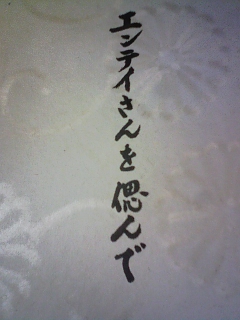 エンテイさんを偲んで